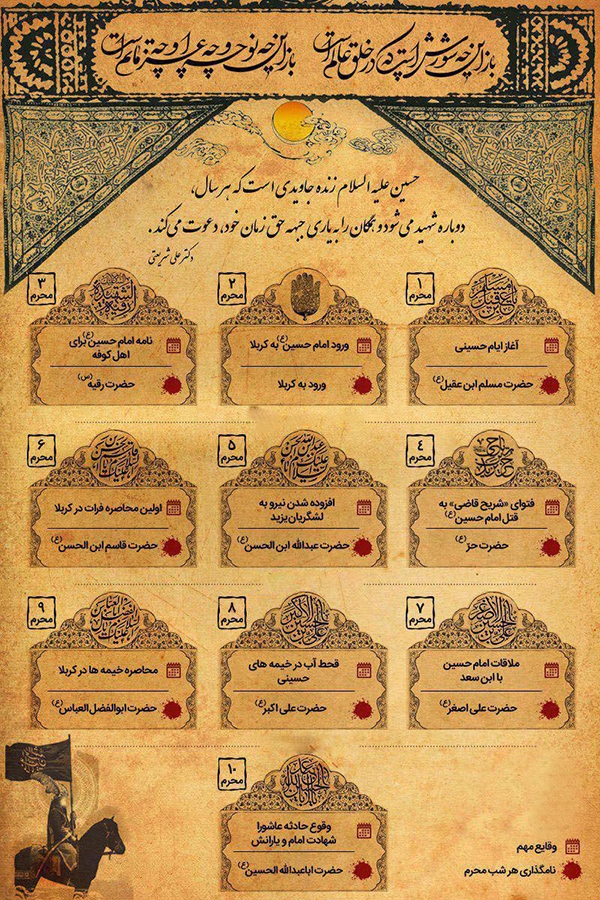 باز این چه شورش است که در خلق عالم است
باز این چه نوحه و چه عزا و چه ماتم است
حسین علیه السلام زنده جاویدی است که هر سال،
دوباره شهید می‌شود و همگان را به یاری جبهه حق زمان خود، دعوت می‌کند.
دکتر علی شریعتی
۱
محرم
آغاز ایام حسینی
حضرت مسلم ابن عقیل(ع)
۲
محرم
ورود امام حسین(ع) به کربلا
ورود به کربلا
۳
محرم
نامه امام حسین(ع) برای
اهل کوفه
حضرت رقیه(س)
۴
محرم
فتوای «شریح قاضی» به
قتل امام حسین(ع)
حضرت حر(ع)
۵
محرم
افزوده شدن نیرو به
لشگریان یزید
حضرت عبدالله ابن الحسن(ع)
۶
محرم
اولین محاصره فرات در کربلا
حضرت قاسم ابن الحسن(ع)
۷
محرم
ملاقات امام حسین
با ابن سعد
حضرت علی اصغر(ع)
۸
محرم
قحط آب در خیمه های
حسینی
حضرت علی اکبر(ع)
۹
محرم
محاصره خیمه ها در کربلا
حضرت ابوالفضل العباس(ع)
۱۰
محرم
وقوع حادثه عاشورا
شهادت امام و یارانش
حضرت اباعبدالله الحسین(ع)
وقایع مهم
نامگذاری هر شب محرم